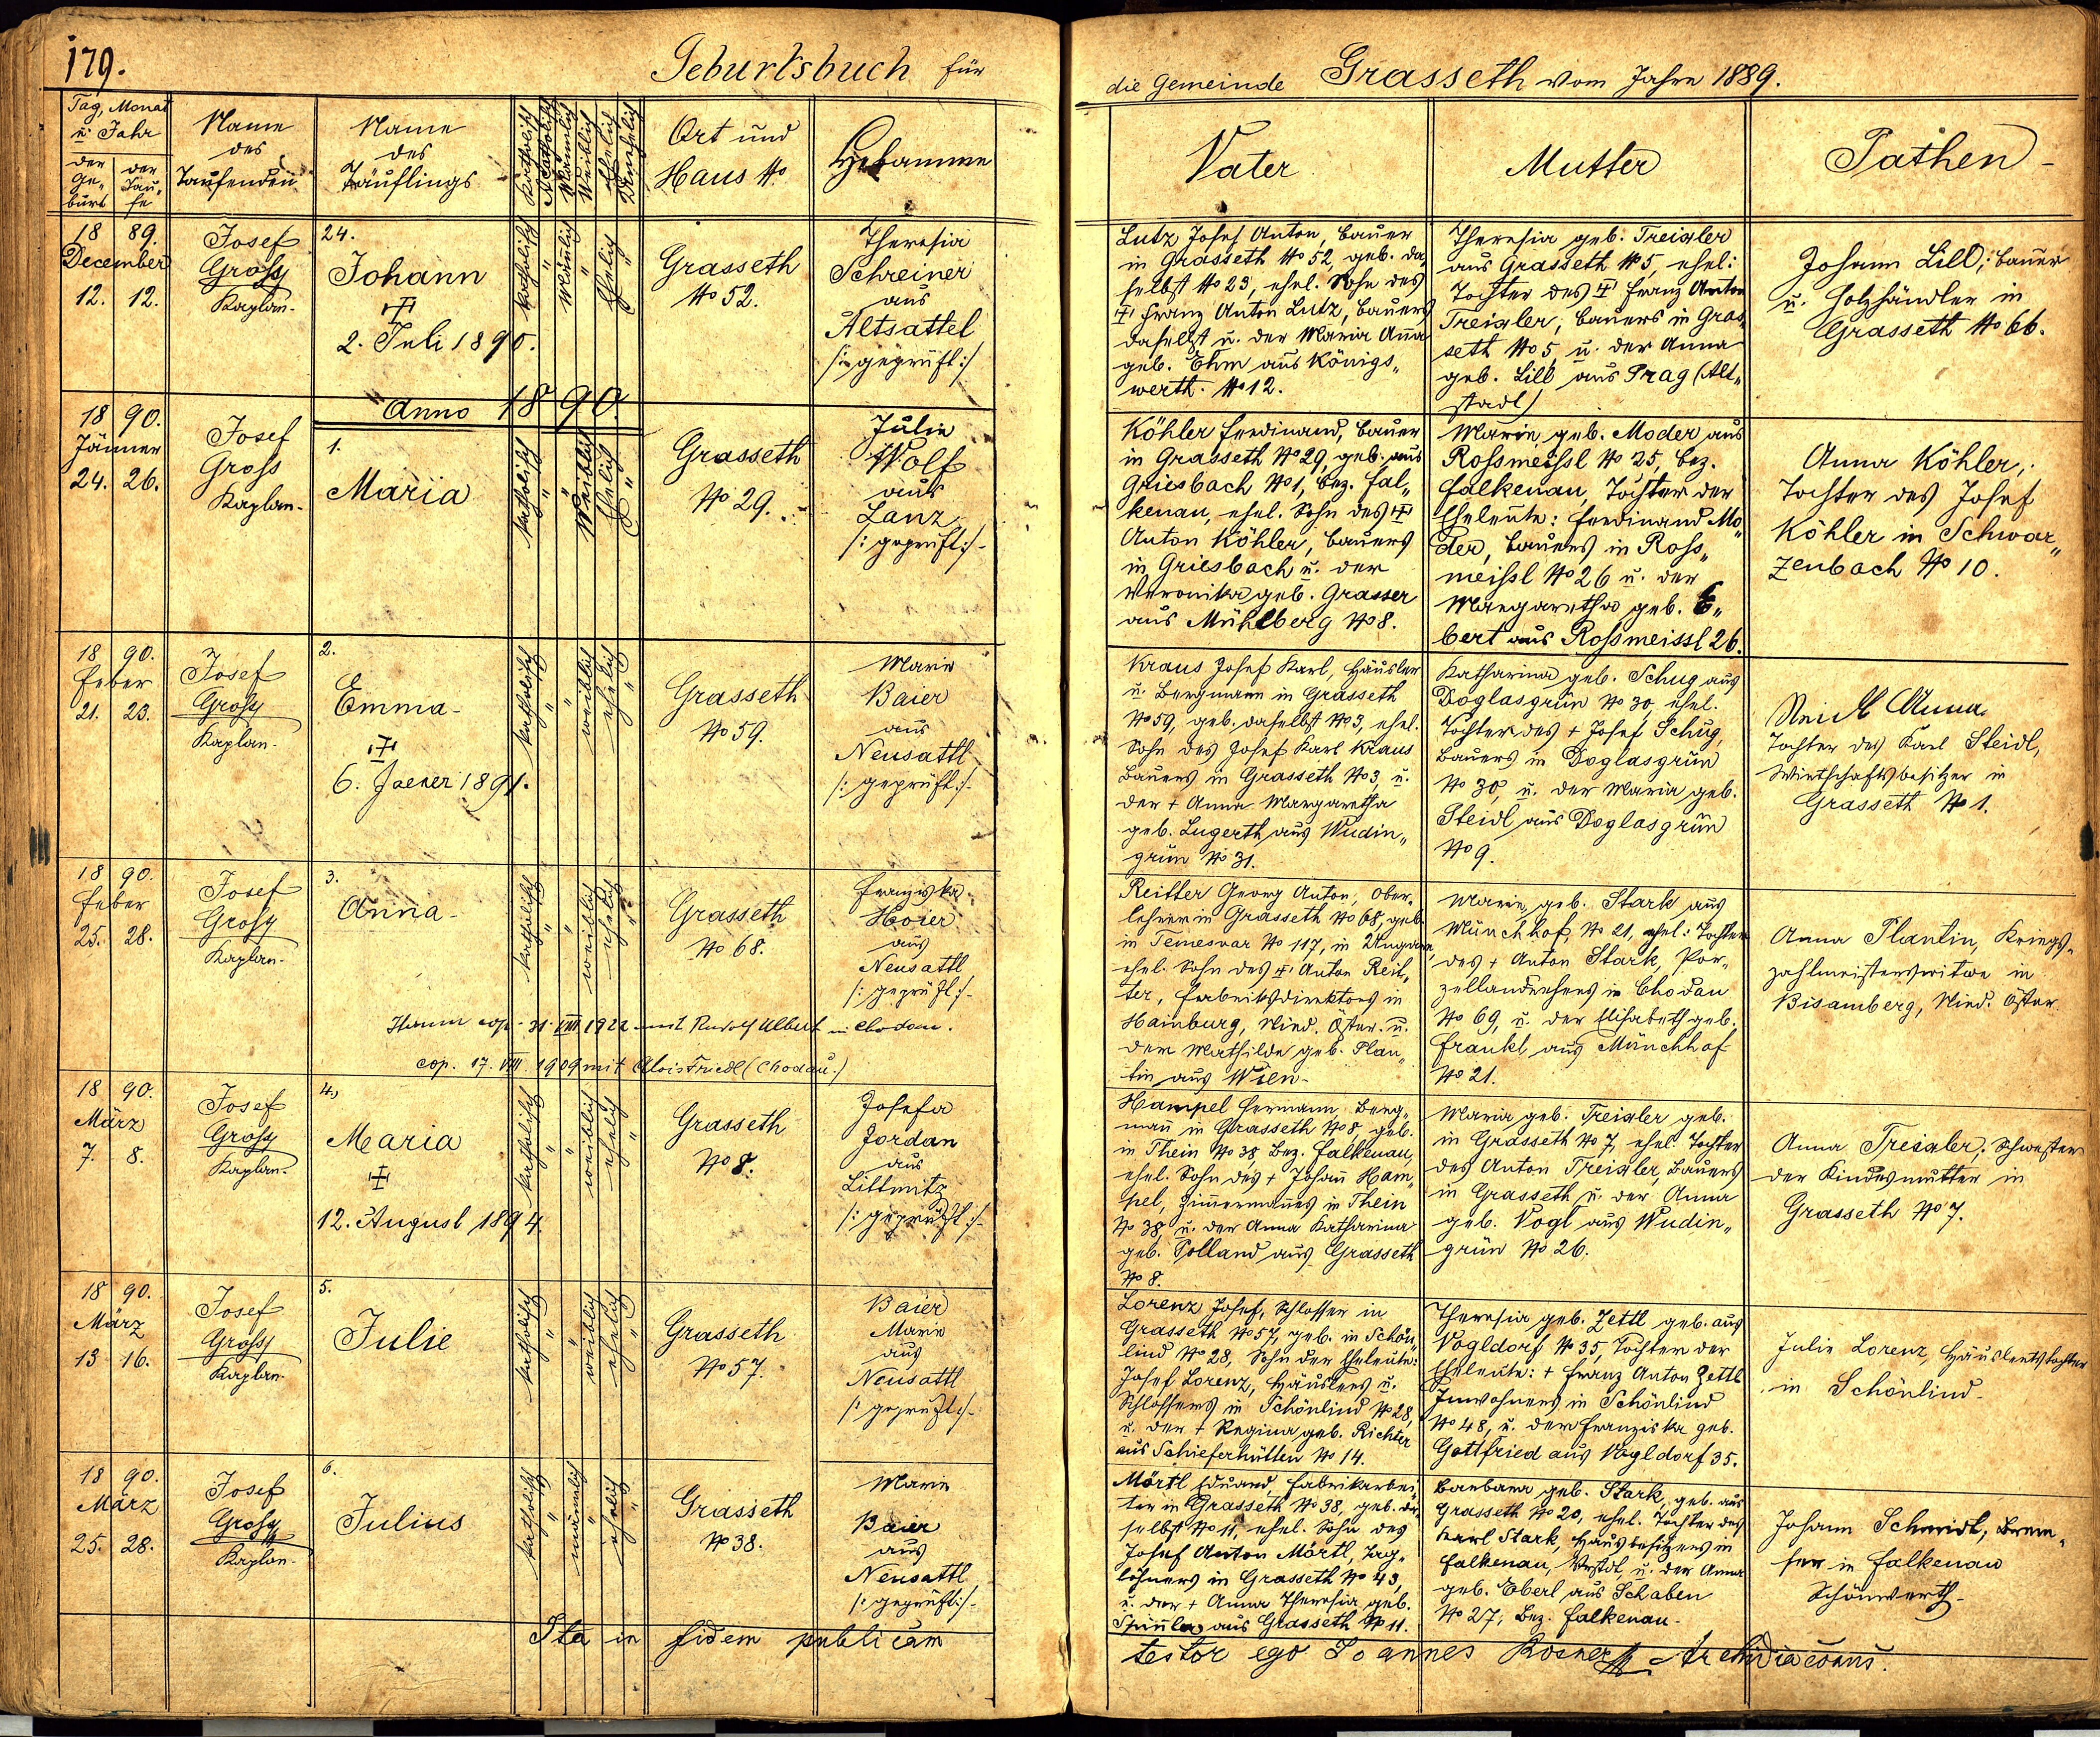 179.
Geburtsbuch für
die Gemeinde Grasseth vom Jahre 1889.
Tag, Monat
u. Jahr
der Ge„
burt
der Tau„
fe
Name
des
Taufenden
Name
des
Täuflings
Katholisch
Akatholisch
Männlich
Weiblich
Ehelich
Unehelich
Ort und
Haus No
Hebamme
Vater
Mutter
Pathen
18 89.
December
12. 12.
Josef
Groß
Kaplan.
24.
Johann
2. Juli 1890.
katholisch
Mänlich
Ehelich
Grasseth
No 52.
Theresia
Schreiner
aus
Altsattel
/: geprüft :/
Lutz Josef Anton, Bauer
in Grasseth No 52, geb. da
selbst No 23, ehel. Sohn des
Franz Anton Lutz, Bauers
daselbst u. der Maria Anna
geb. Ehm aus Königs„
werth. No 12.
Theresia geb. Treixler
aus Grasseth No 5, ehel:
Tochter des Franz Anton
Treixler, Bauers in Gras„
seth No 5 u. der Anna
geb. Lill aus Prag (Alt„
stadt)
Johann Lill, Bauer
u. Holzhändler in
Grasseth No 66.
Anno 1890.
18 90.
Jänner
24. 26.
Josef
Gross
Kaplan.
1.
Maria
katholisch
Weiblich
Ehelich
Grasseth
No 29.
Julie
Wolf
aus
Lanz
/: geprüft :/
Köhler Ferdinand, Bauer
in Grasseth No 29, geb. aus
Griesbach No 1, Bez. Fal„
kenau, ehel. Sohn des
Anton Köhler, Bauers
in Griesbach u. der
Veronika geb. Grasser
aus Mühlberg No 8.
Marie geb. Moder aus
Roßmeissl No 25, Bez.
Falkenau, Tochter der
Eheleute: Ferdinand Mo„
der, Bauers in Roß„
meißl No 26 u. der
Margaretha geb. E„
bert aus Roßmeissl 26.
Anna Köhler,
Tochter des Josef
Köhler in Schwar„
zenbach No 10.
18 90.
Feber
21. 23.
Josef
Groß
Kaplan.
2.
Emma
6. Jaener 1891.
katholisch
weiblich
ehelich
Grasseth
No 59.
Marie
Baier
aus
Neusattl
/: geprüft :/
Kraus Josef Karl, Häusler
u. Bergmann in Grasseth
No 59, geb. daselbst No 3, ehel.
Sohn des Josef Karl Kraus
Bauers in Grasseth No 3, u.
der + Anna Margaretha
geb. Lugerth aus Wudin„
grün No 31.
Katharina geb. Schug aus
Doglasgrün No 30, ehel.
Tochter des + Josef Schug,
Bauers in Doglasgrün
No 30, u. der Maria geb.
Steidl aus Doglasgrün
No 9.
Steidl Anna
Tochter des Karl Steidl,
Wirtschaftsbesitzer in
Grasseth No 1.
18 90.
Feber
25. 28.
Josef
Groß
Kaplan.
3.
Anna
katholisch
weiblich
ehelich
Grasseth
No 68.
Franziska
Hoier
aus
Neusattl
/: geprüft :/
cop. 31. VIII 1922 mit Rudolf Ulbert in Chodau.
cop. 17. VIII. 1909 mit Alois Friedl (Chodau.)
Reitter Georg Anton, Ober„
lehrer in Grasseth No 68, geb.
in Temesvar No 117, in Ungarn,
ehel. Sohn des Anton Reit„
ter, Fabriksdirektors in
Hainburg, Nied. Öster. u.
der Mathilde geb. Plan„
tin aus Wien.
Marie geb. Stark aus
Münchhof, No 21, ehel: Tochter
des + Anton Stark, Por„
zellandrehers in Chodau
No 69, u. der Elisabeth geb.
Frankl aus Münchhof
No 21.
Anna Plantin, Kriegs„
zahlmeisterswitwe in
Bisamberg, Nied. Öster.
18 90.
März
7. 8.
Josef
Groß
Kaplan.
4.)
Maria
12. August 1894.
katholisch
weiblich
ehelich
Grasseth
No 8.
Josefa
Jordan
aus
Littmitz
/: geprüft :/
Hampel Hermann, Berg„
mann in Grasseth No 8 geb.
in Thein No 38, Bez. Falkenau,
ehel. Sohn des + Johann Ham„
pel, Zimmermannes in Thein
No 38, u. der Anna Katharina
geb. Polland aus Grasseth
No 8.
Maria geb. Treixler geb.
in Grasseth No 7, ehel. Tochter
des Anton Treixler, Bauers
in Grasseth u. der Anna
geb. Vogl aus Wudin„
grün No 26.
Anna Treixler, Schwester
der Kindesmutter in
Grasseth No 7.
18 90.
März
13 16.
Josef
Groß
Kaplan.
5.
Julie
katholisch
weiblich
ehelich
Grasseth
No 57.
Baier
Marie
aus
Neusattl
/: geprüft :/
Lorenz Josef, Schlosser in
Grasseth No 57, geb. in Schön„
lind No 28, Sohn der Eheleute:
Josef Lorenz, Häuslers u.
Schlossers in Schönlind No 28,
u. der + Regina geb. Richter
aus Schieferhütten No 14.
Theresia geb. Zettl geb. aus
Vogldorf No 35, Tochter der
Eheleute: + Franz Anton Zettl
Inwohners in Schönlind
No 48, u. der Franziska geb.
Gottfried aus Vogldorf 35.
Julie Lorenz, Häuslerstochter
in Schönlind
18 90.
März
25. 28.
Josef
Groß
Kaplan.
6.
Julius
katholisch
männlich
ehelich
Grasseth
No 38.
Marie
Baier
aus
Neusattl
/: geprüft :/
Mörtl Eduard, Fabrikarbei„
ter in Grasseth No 38, geb. da„
selbst No 11, ehel. Sohn des
Josef Anton Mörtl, Tag„
löhners in Grasseth No 43,
u. der + Anna Theresia geb.
aus Grasseth No 11.
Barbara geb. Stark, geb. aus
Grasseth No 20, ehel. Tochter des
Karl Stark, Hausbesitzers in
Falkenau, Vrstdt, u. der Anna
geb. Eberl aus Schaben
No 27, Bez. Falkenau.
Johann Schmidt, Brem„
ser in Falkenau
Schönwerth.
Ita in fidem publicam
testor ego Joannes Rosner Archidiaconus.